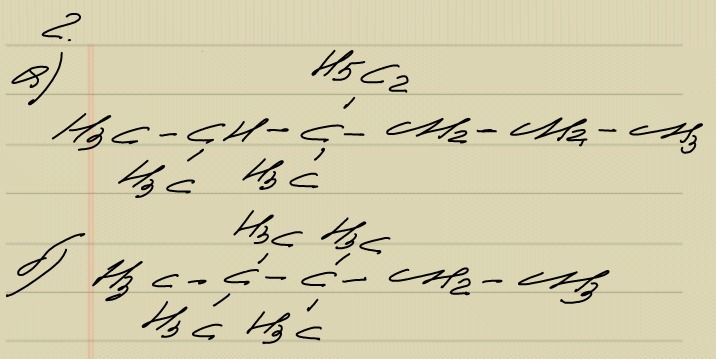 2.
а)
H5C2
H3C - CH - C - CH2 - CH2 - CH3
H3C H3C
H3C H3C
б) H3C - C - C - CH2 - CH3
H3C H3C